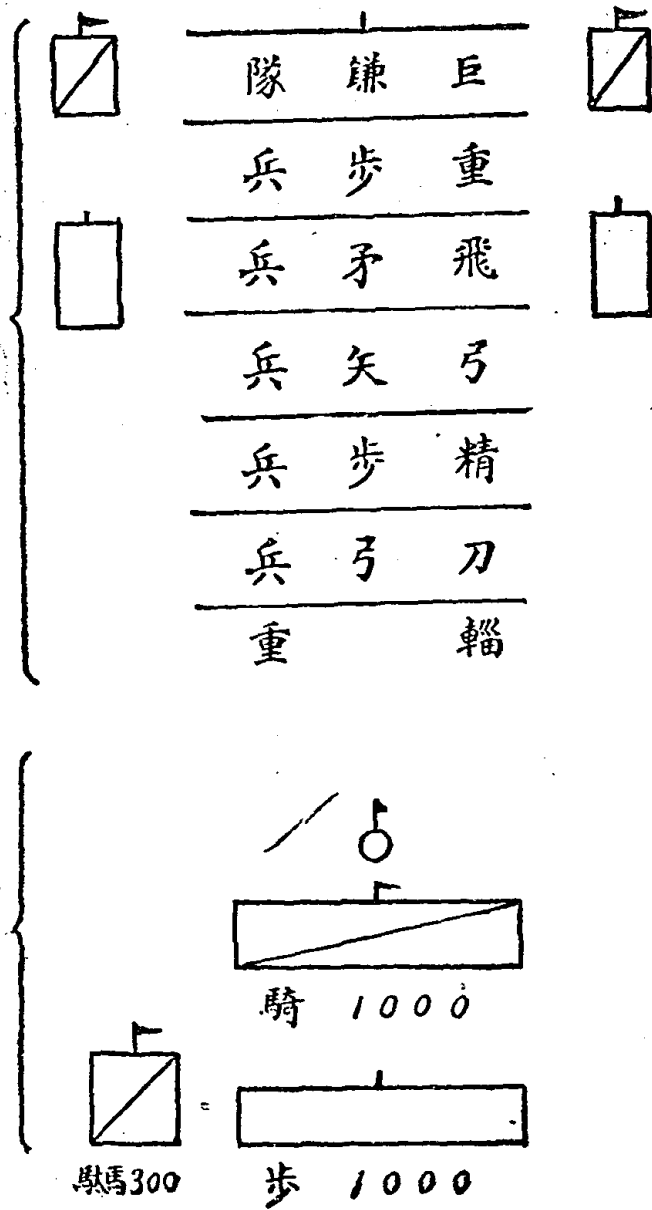 巨鎌隊
重歩兵
飛矛兵
弓矢兵
精歩兵
刀弓兵
輜重
騎 1000
駄馬300
歩 1000